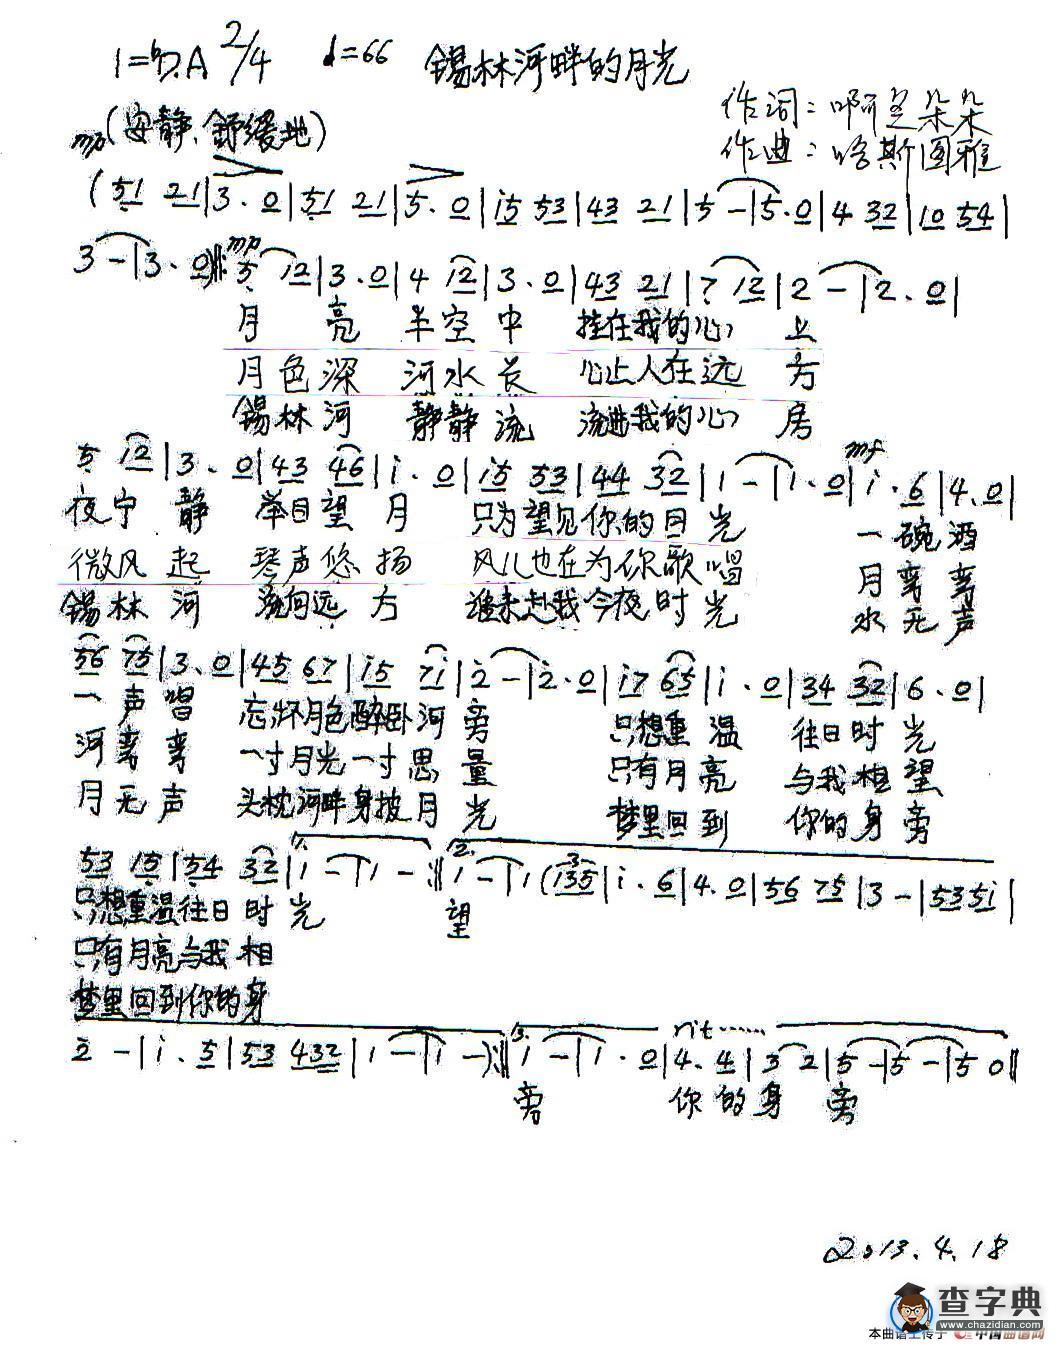 1=♭D.A 2/4 ♩=66 锡林河畔的月光
作词：啊芝朵朵
mp(安静、舒缓地)
作曲：哈斯图雅
(51 21|3.0|51 21|5.0|i5 53|43 21|5-|5.0|4 32|10 54|
3-|3.0)‖:mp 5 12|3.0|4 12|3.0|43 21|7 12|2-|2.0|
月 亮 半空中 挂在我的心 上
月色深 河水长 心上人在远 方
锡林河 静静流 流进我的心 房
5 12|3.0|43 46|i.0|i5 53|44 32|1-|1.0|mf i.6|4.0|
夜宁静 举目望月 只为望见你的目光 一碗酒
微风起 琴声悠扬 风儿也在为你歌唱 月弯弯
锡林河 流向远方 谁来赴我今夜时光 水无声
56 75|3.0|45 67|i5 7i|2-|2.0|i7 65|i.0|34 32|6.0|
一声唱 忘怀月色醉卧河旁 只想重温 往日时光
河弯弯 一寸月光一寸思量 只有月亮 与我相望
月无声 头枕河畔身披月光 梦里回到 你的身旁
53 15|54 32|1. 1-|1-:‖2. 1-|1(3 135|i.6|4.0|56 75|3-|535i|
只想重温往日时光 望
只有月亮与我相
梦里回到你的身
2-|i.5|53 432|1-|1-):‖3. 1-|1.0|rit…… 4.4|3 2|5-|5-|5 0‖
旁 你的身旁
2013.4.18
查字典
www.chazidian.com
本曲谱上传于 中国曲谱网